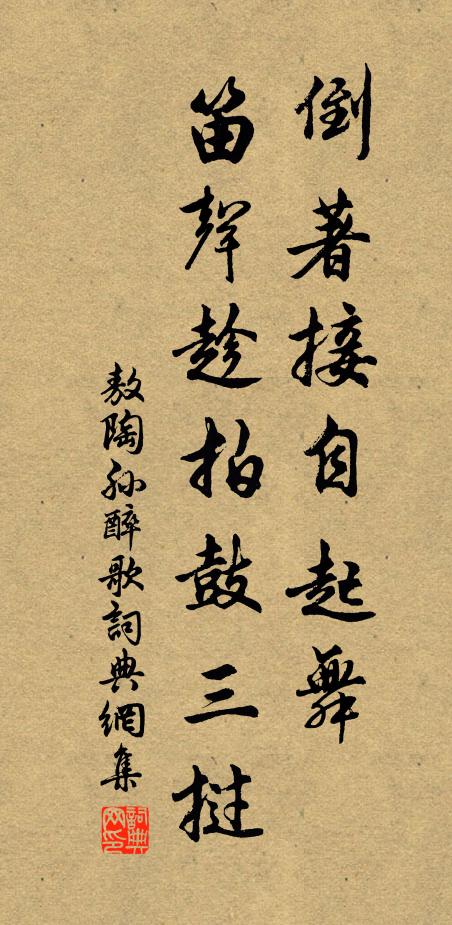 倒著接自起舞
笛聲趁拍鼓三撾
敖陶孫醉歌詞典網集
詞典網印